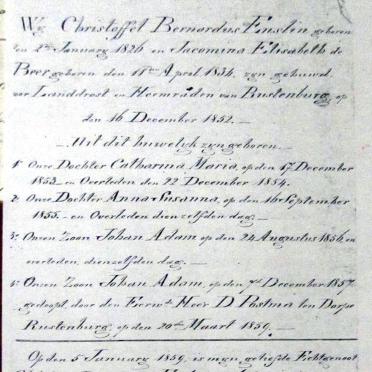 Wij Christoffel Bernardus Enslin geboren
den 2den January 1826 en Jacomina Elisabeth de
Beer geboren den 11den April 1834, zyn gehuwd
voor Landdrost en Heemraden van Rustenburg, op
den 16 December 1852.—
—Uit dit huwelyk zyn geboren—
1e Onze Dochter Catharina Maria, op den 17 December
1853 en Overleden den 22 December 1854.
2e Onze Dochter Anna Susanna, op den 16 September
1855.— en Overleden dienzelfden dag.—
3e Onzen Zoon Johan Adam, op den 24 Augustus 1856, en
overleden, dienzelfden dag.—
4e Onzen Zoon Johan Adam, op den 7den December 1857
gedoopt, door den Eerw: Heer D Postma ten Dorpe
Rustenburg, op den 20sten Maart 1859.—
Op den 5 January 1859, is myn geliefde Echtgenoot